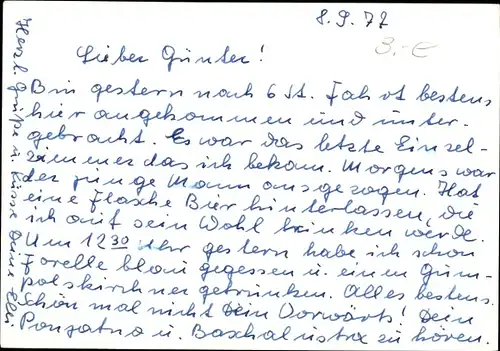 8.9.77
3.-€
Lieber Günter!
Bin gestern nach 6 St. Fahrt bestens
hier angekommen und unter-
gebracht. Es war das letzte Einzel-
zimmer das ich bekam. Morgens war
der junge Mann ausgezogen. Hat
eine Flasche Bier hinterlassen, die
ich auf sein Wohl trinken werde.
Um 12³⁰ Uhr gestern habe ich schon
Forelle blau gegessen u. einen Gum-
polskirchner getrunken. Alles bestens.
Schön mal nicht Dein Vorwärts! Dein
u. zu hören.
Herzl. Grüße u. Küsse Deine